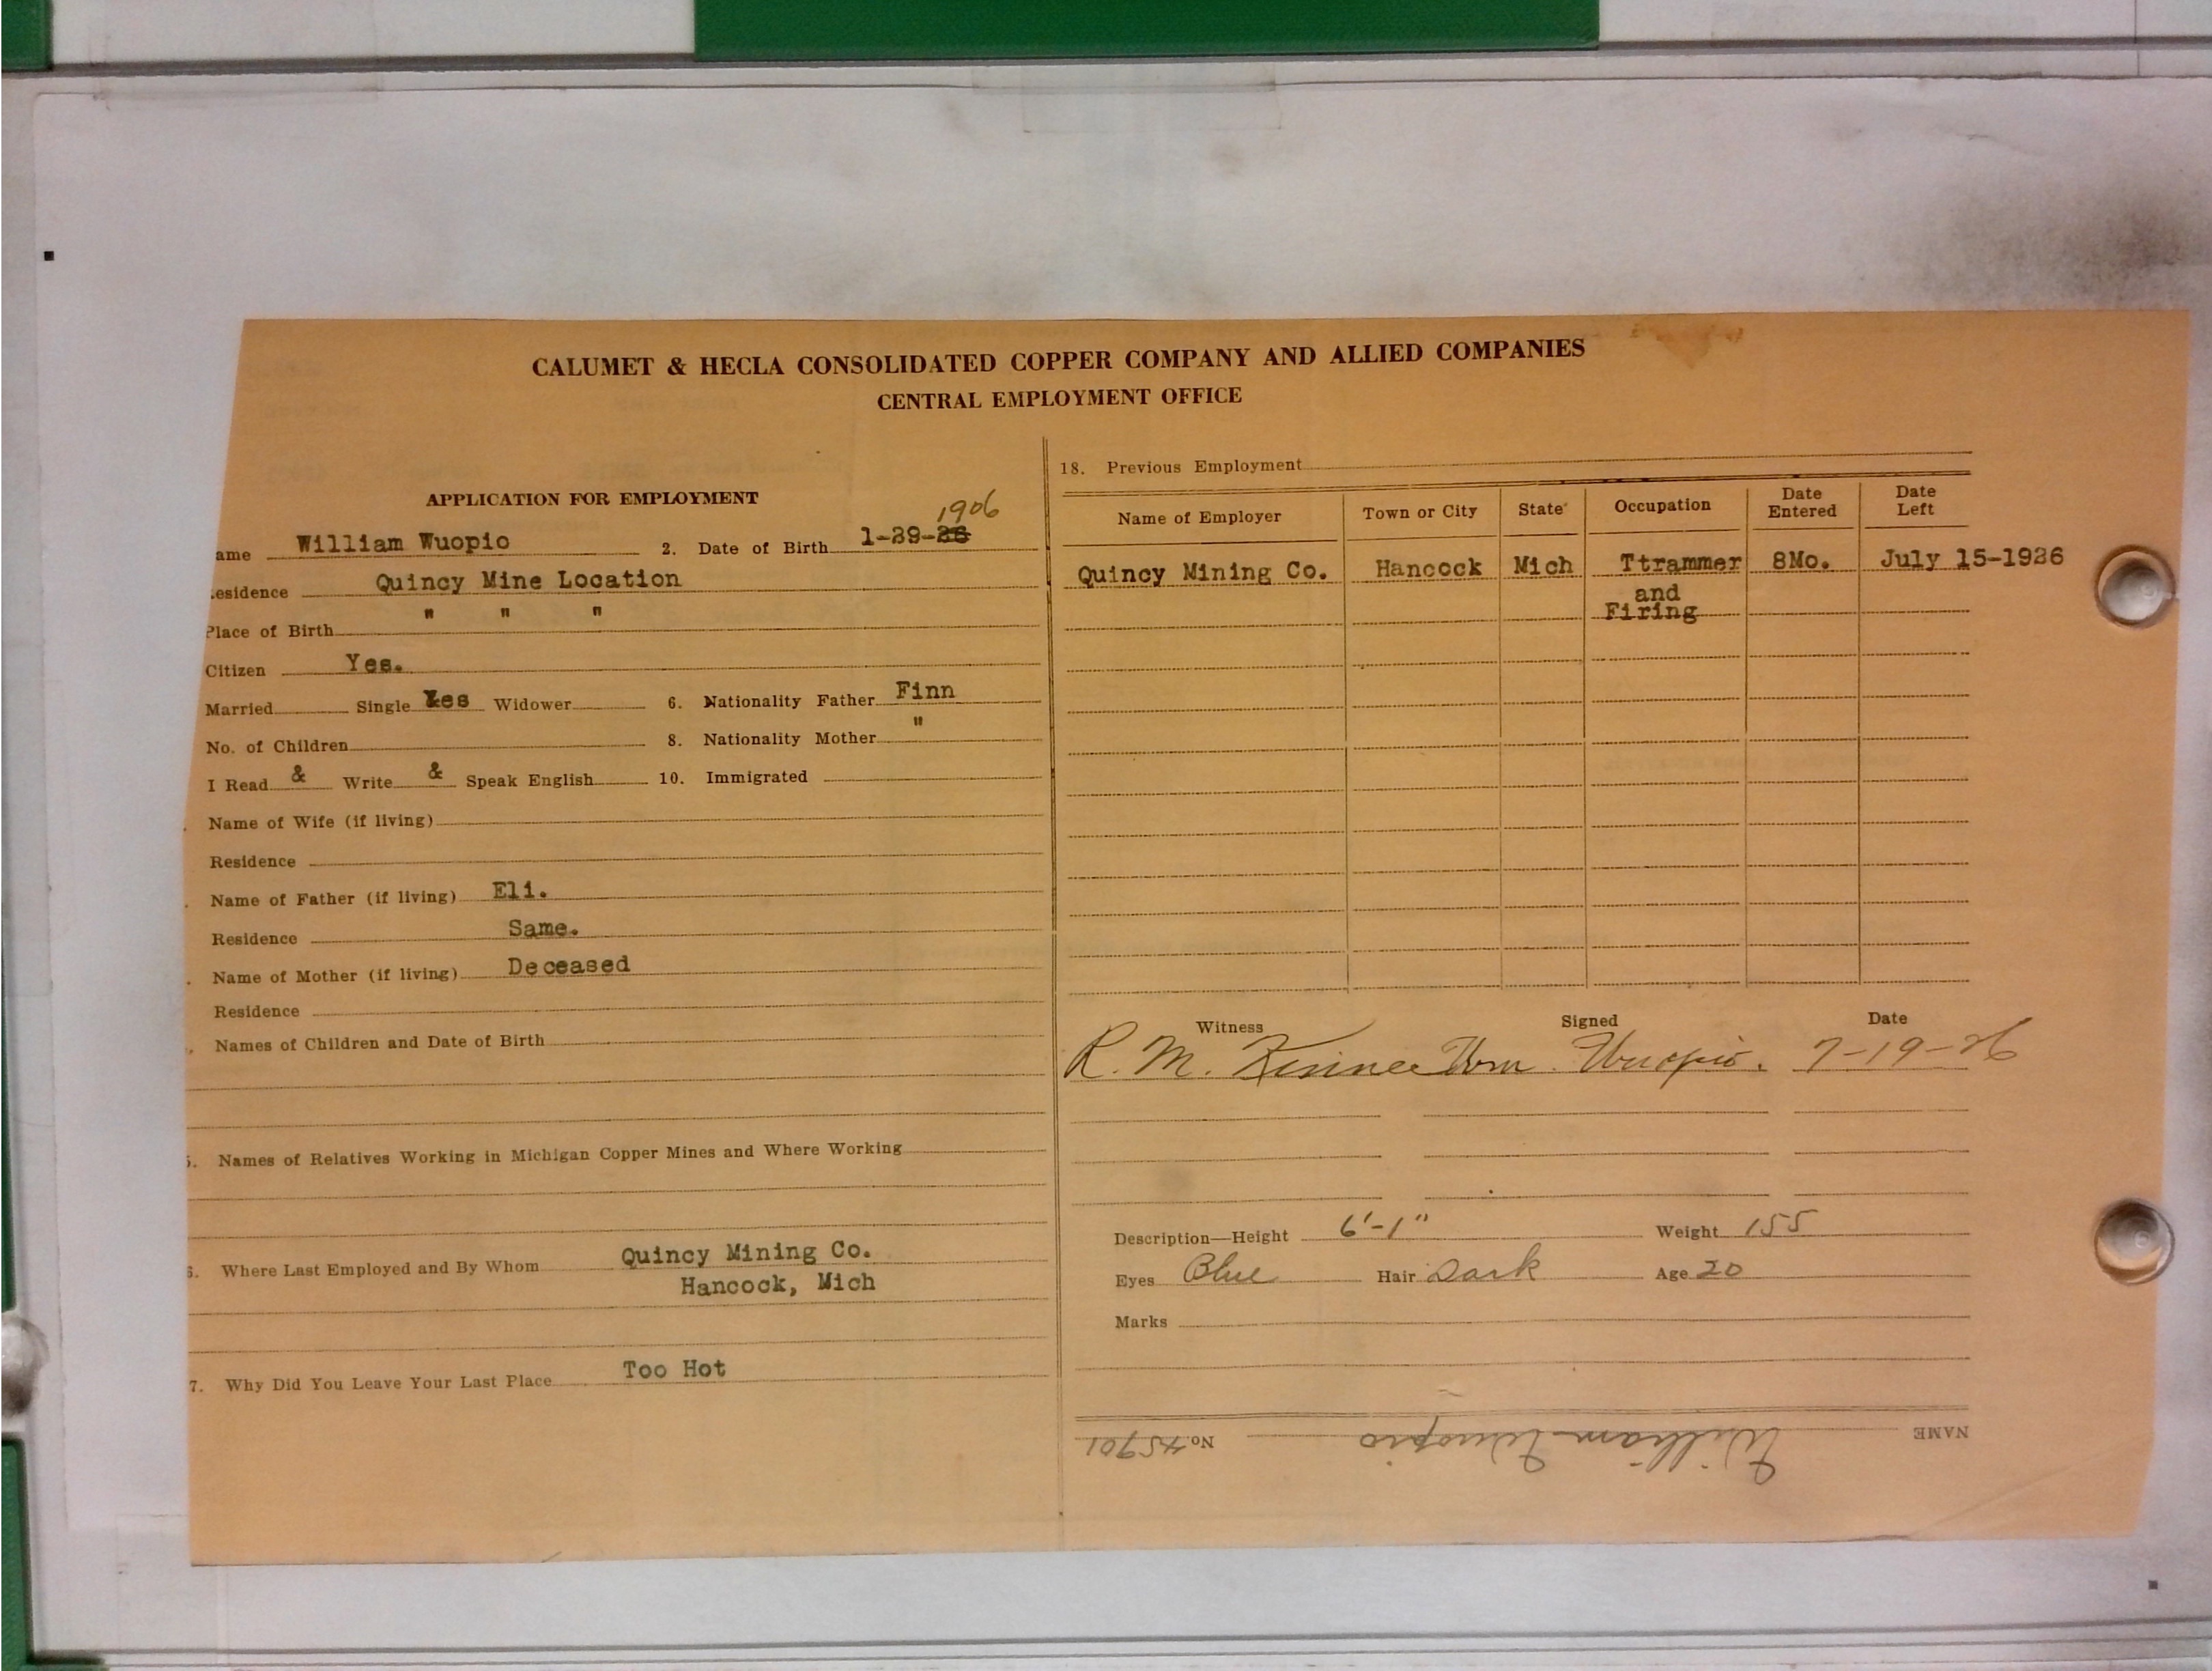 CALUMET & HECLA CONSOLIDATED COPPER COMPANY AND ALLIED COMPANIES
CENTRAL EMPLOYMENT OFFICE
APPLICATION FOR EMPLOYMENT
1906
ame William Wuopio 2. Date of Birth 1-29-26
esidence Quincy Mine Location
Place of Birth " " "
Citizen Yes.
Married Single Yes Widower 6. Nationality Father Finn
No. of Children 8. Nationality Mother "
I Read & Write & Speak English 10. Immigrated
Name of Wife (if living)
Residence
Name of Father (if living) Eli.
Residence Same.
Name of Mother (if living) Deceased
Residence
Names of Children and Date of Birth
5. Names of Relatives Working in Michigan Copper Mines and Where Working
6. Where Last Employed and By Whom Quincy Mining Co.
Hancock, Mich
7. Why Did You Leave Your Last Place Too Hot
18. Previous Employment
Name of Employer Town or City State Occupation Date Entered Date Left
Quincy Mining Co. Hancock Mich Ttrammer 8Mo. July 15-1926
and
Firing
Witness Signed Date
R. M. Wm. Wuopio. 7-19-26
Description—Height 6'-1" Weight 155
Eyes Blue Hair Dark Age 20
Marks
NAME William Wuopio No. 45901